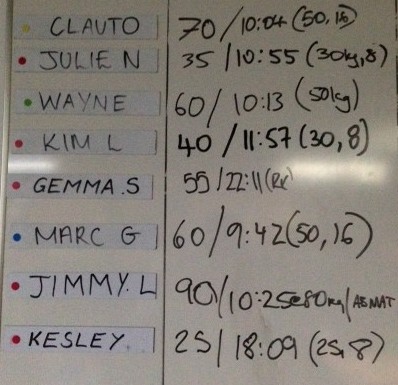 CLAUTO 70/10:04 (50,16)
JULIE N 35/10:55 (30kg,8)
WAYNE 60/10:13 (50kg)
KIM L 40/11:57 (30,8)
GEMMA.S 55/22:11 (Rx)
MARC G 60/9:42 (50,16)
JIMMY.L 90/10:25@80kg/ABMAT
KESLEY 25/18:09 (25,8)